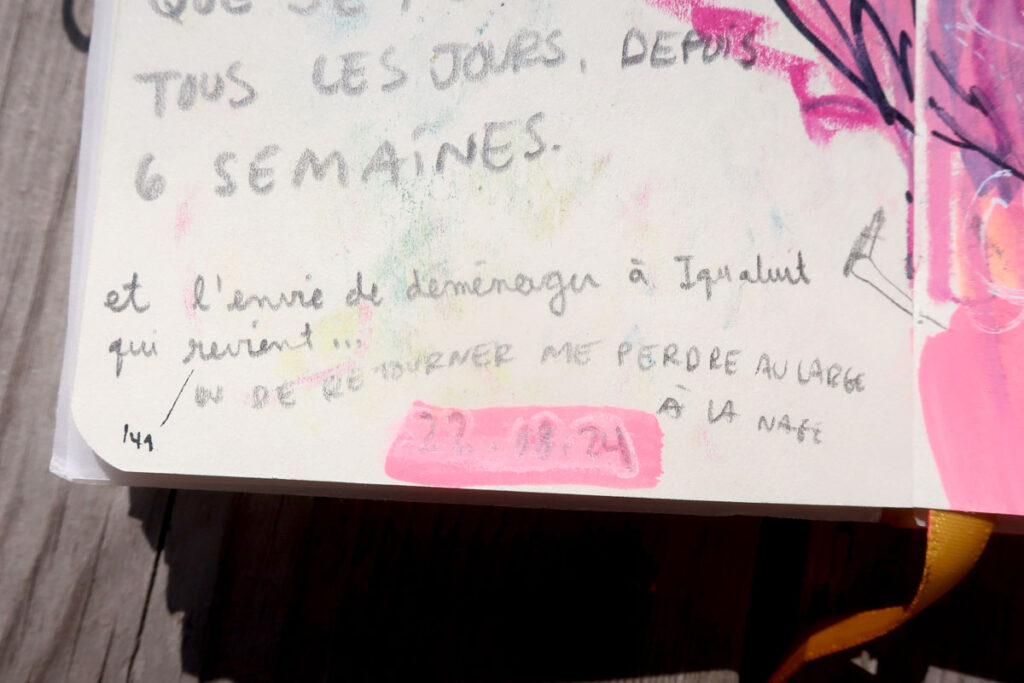 QUE JE
TOUS LES JOURS, DEPUIS
6 SEMAINES.
et l'envie de déménager à Iqualuit
qui revient...
OU DE RETOURNER ME PERDRE AU LARGE
À LA NAGE
22.08.24